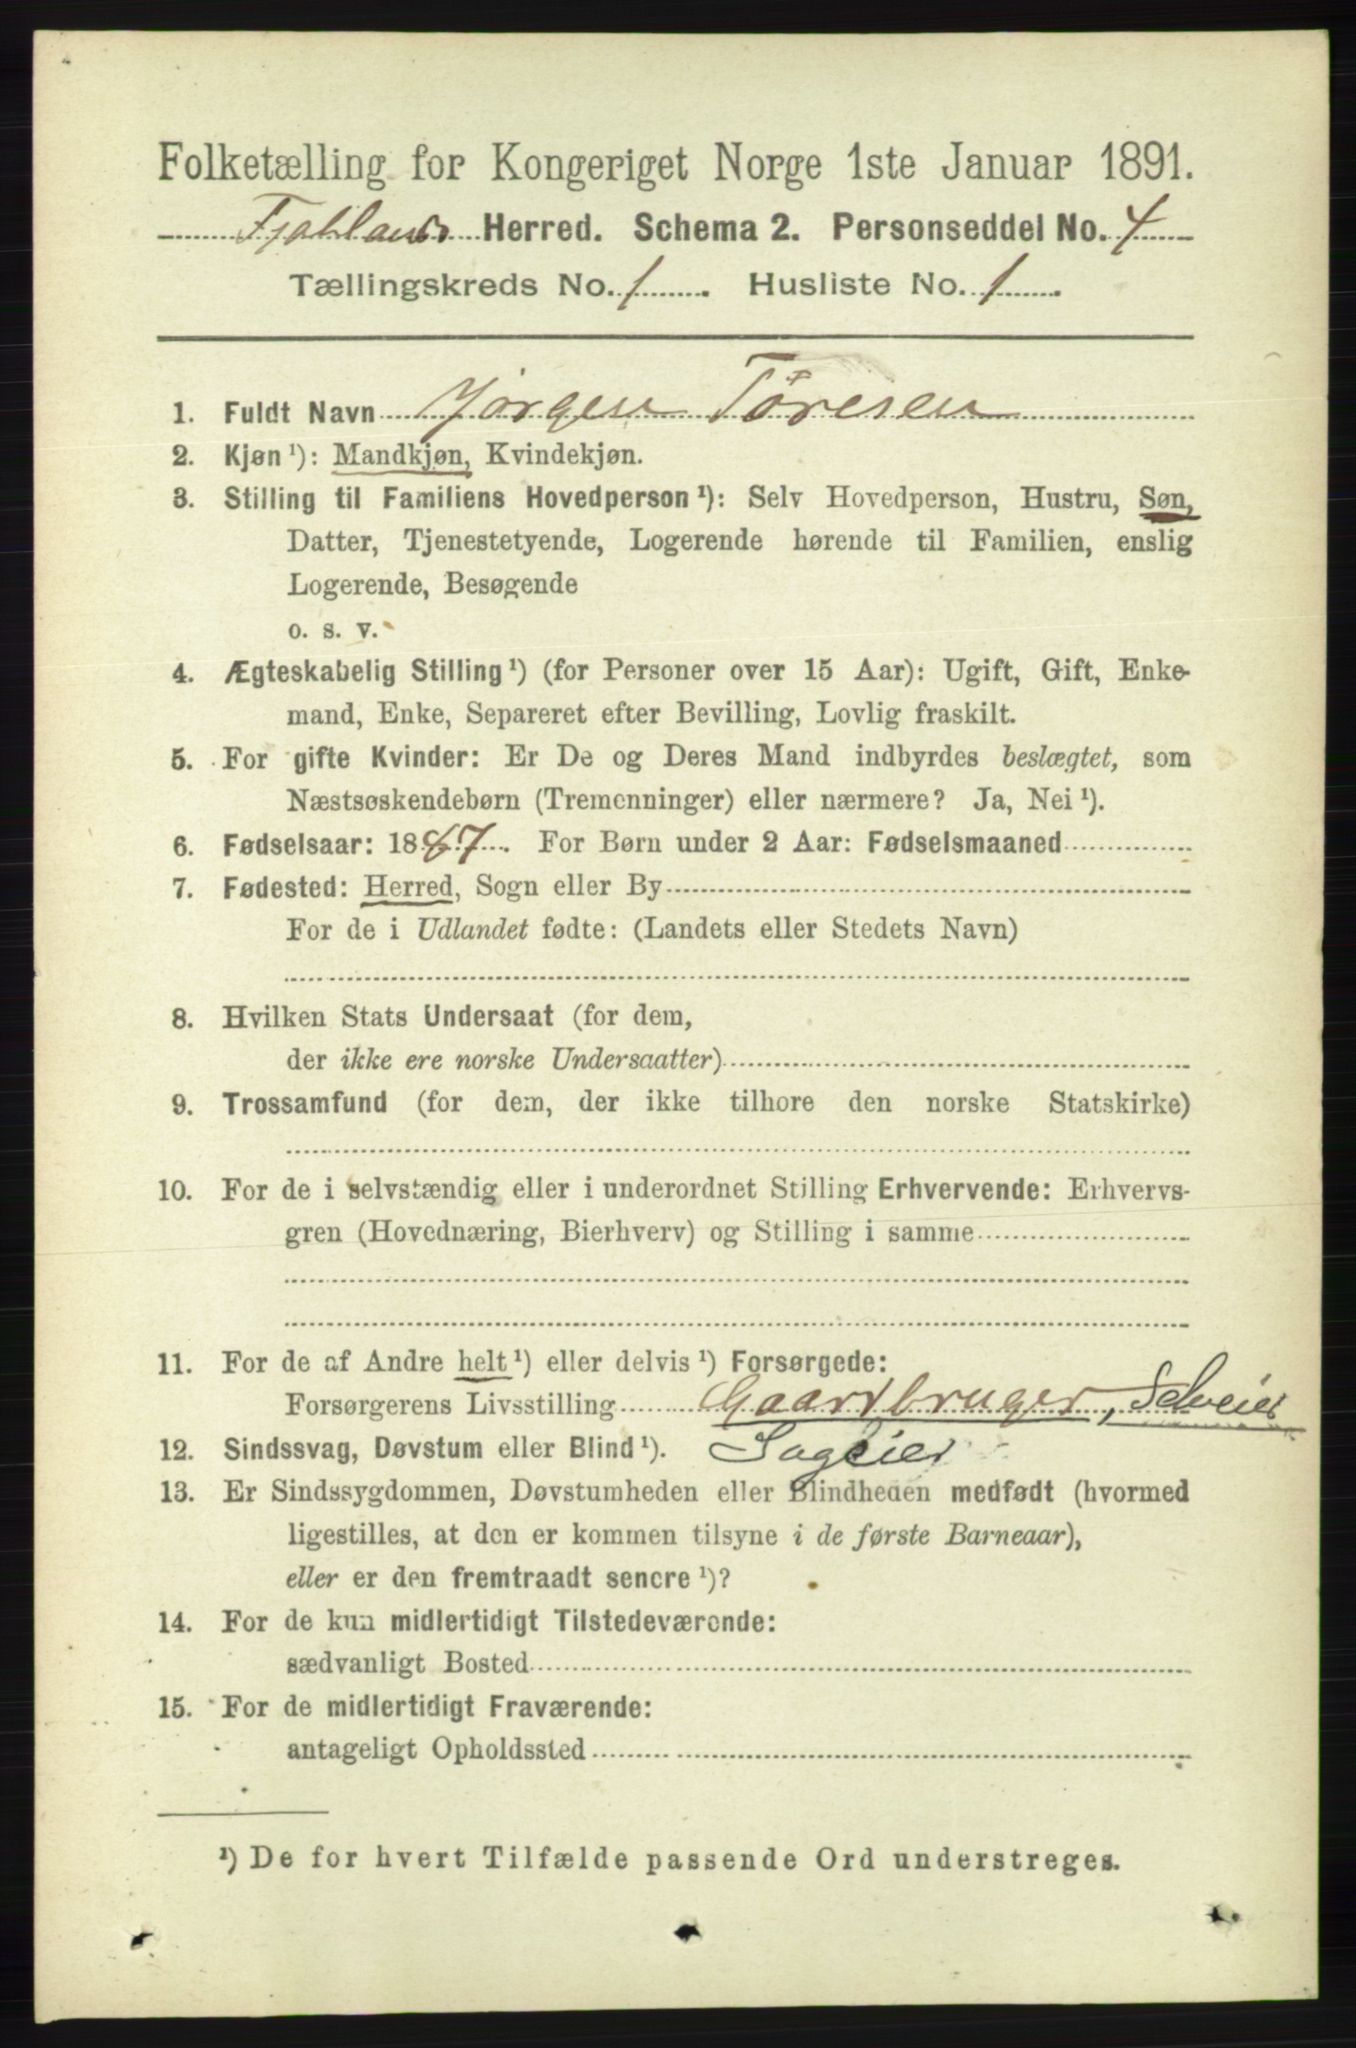 Folketælling for Kongeriget Norge 1ste Januar 1891.
Fjotlands Herred. Schema 2. Personseddel No. 4
Tællingskreds No. 1. Husliste No. 1.
1. Fuldt Navn Jørgen Tøresen
2. Kjøn ¹): Mandkjøn, Kvindekjøn.
3. Stilling til Familiens Hovedperson ¹): Selv Hovedperson, Hustru, Søn,
Datter, Tjenestetyende, Logerende hørende til Familien, enslig
Logerende, Besøgende
o. s. v.
4. Ægteskabelig Stilling ¹) (for Personer over 15 Aar): Ugift, Gift, Enke-
mand, Enke, Separeret efter Bevilling, Lovlig fraskilt.
5. For gifte Kvinder: Er De og Deres Mand indbyrdes beslægtet, som
Næstsøskendebørn (Tremenninger) eller nærmere? Ja, Nei ¹).
6. Fødselsaar: 1887. For Børn under 2 Aar: Fødselsmaaned
7. Fødested: Herred, Sogn eller By
For de i Udlandet fødte: (Landets eller Stedets Navn)
8. Hvilken Stats Undersaat (for dem,
der ikke ere norske Undersaatter)
9. Trossamfund (for dem, der ikke tilhøre den norske Statskirke)
10. For de i selvstændig eller i underordnet Stilling Erhvervende: Erhvervs-
gren (Hovednæring, Bierhverv) og Stilling i samme
11. For de af Andre helt ¹) eller delvis ¹) Forsørgede:
Forsørgerens Livsstilling Gaardbruger, Selveier
12. Sindssvag, Døvstum eller Blind ¹). Sageier
13. Er Sindssygdommen, Døvstumheden eller Blindheden medfødt (hvormed
ligestilles, at den er kommen tilsyne i de første Barneaar),
eller er den fremtraadt senere ¹)?
14. For de kun midlertidigt Tilstedeværende:
sædvanligt Bosted
15. For de midlertidigt Fraværende:
antageligt Opholdssted
¹) De for hvert Tilfælde passende Ord understreges.